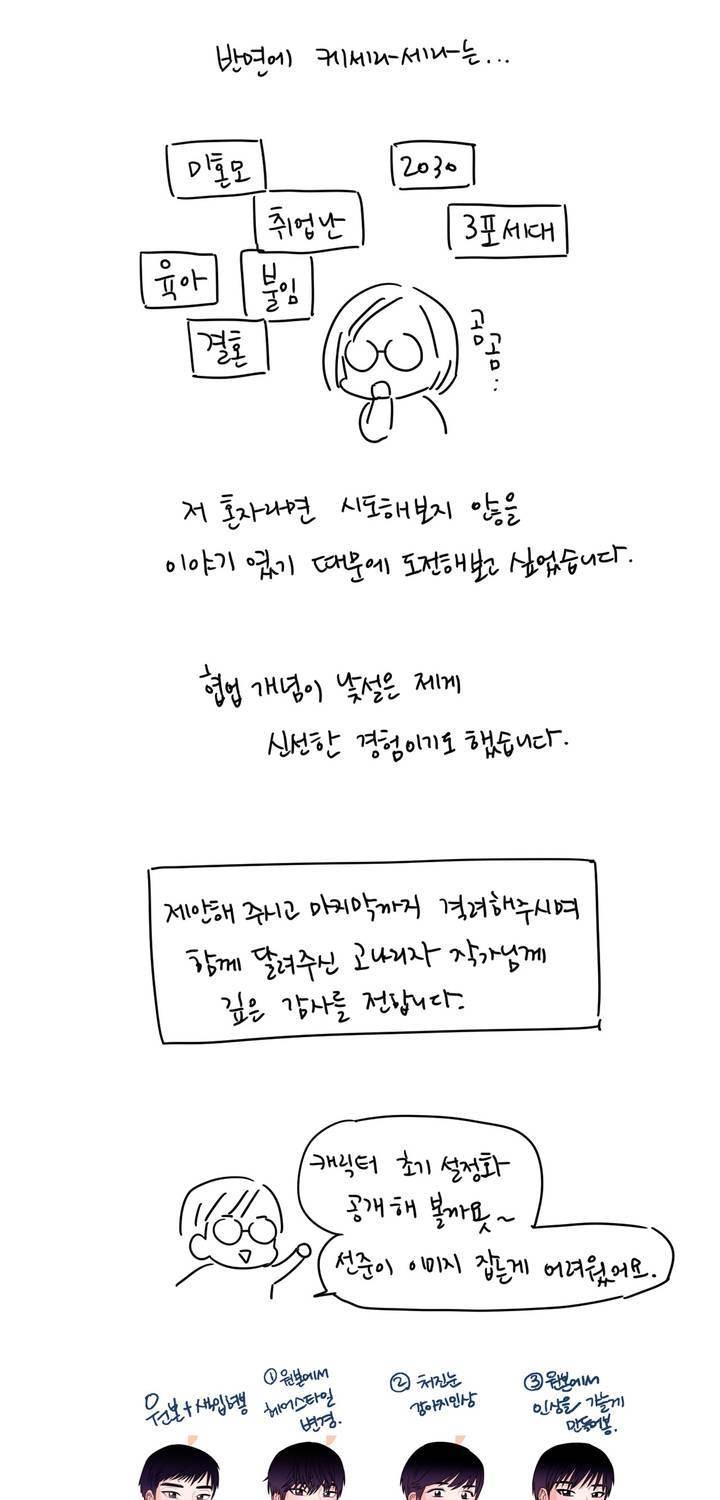 반면에 케세라세라는...
미혼모
2030
취업난
3포세대
육아
불임
결혼
곰곰..
저 혼자라면 시도해보지 않을
이야기 였기 때문에 도전해보고 싶었습니다.
협업 개념이 낯설은 제게
신선한 경험이기도 했습니다.
제안해 주시고 마지막까지 격려해주시며
함께 달려주신 고나리자 작가님께
깊은 감사를 전합니다.
캐릭터 초기 설정화
공개해 볼까욧~
선준이 이미지 잡는게 어려웠어요.
원본+새입혀봄
① 원본에서
헤어스타일
변경.
② 처진눈
강아지인상
③ 원본에서
인상을 가늘게
만들어봄.